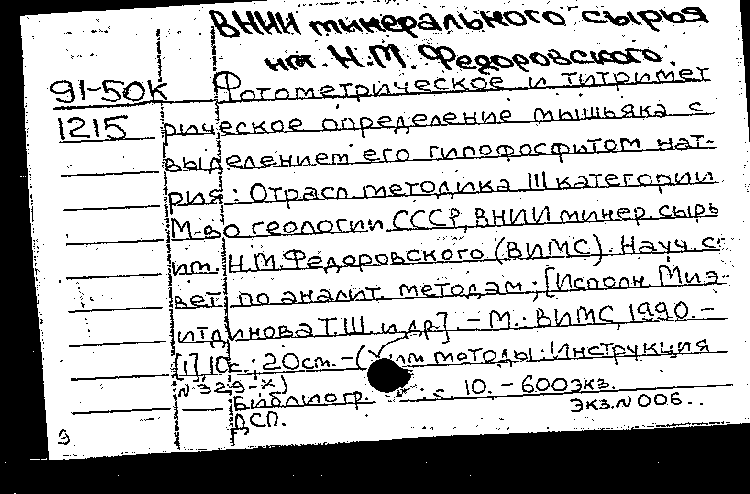 ВНИИ минерального сырья
им. Н.М. Федоровского.
91-50К Фотометрическое и титримет
1215 рическое определение мышьяка с
выделением его гипофосфитом нат-
рия: Отрасл. методика III категории
М-во геологии СССР, ВНИИ минер. сырь
им. Н.М. Федоровского (ВИМС). Науч. с
вет по аналит. методам; [Исполн. Миз-
итдинова Т.Ш. и др.]. - М.: ВИМС, 1990. -
[1] 10с.; 20см. - (Хим методы: Инструкция
№ 329-х)
Библиогр. : с. 10. - 600экз.
ДСП. Экз. № 006.
9